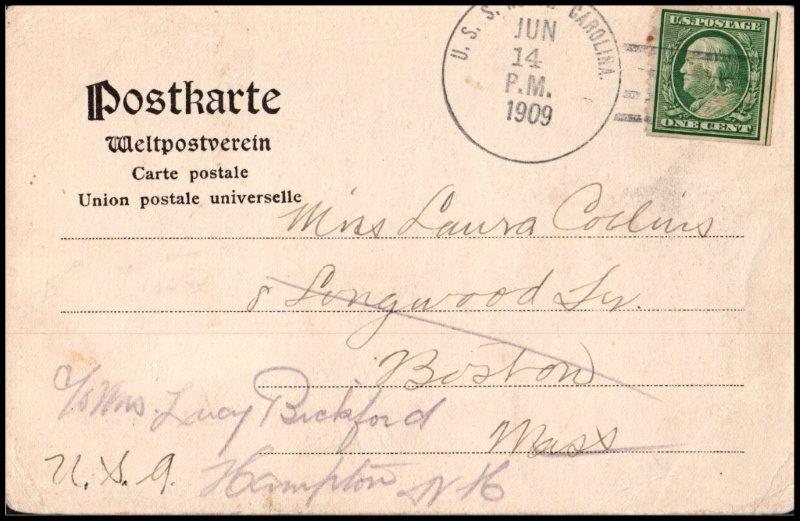 U. S. S. CAROLINA.
JUN
14
P.M.
1909
U.S. POSTAGE
ONE CENT
Postkarte
Weltpostverein
Carte postale
Union postale universelle
Miss Laura Collins
8 Longwood
Boston
Mass
c/o Mrs. Lucy Bickford
Hampton NH
U.S.A.